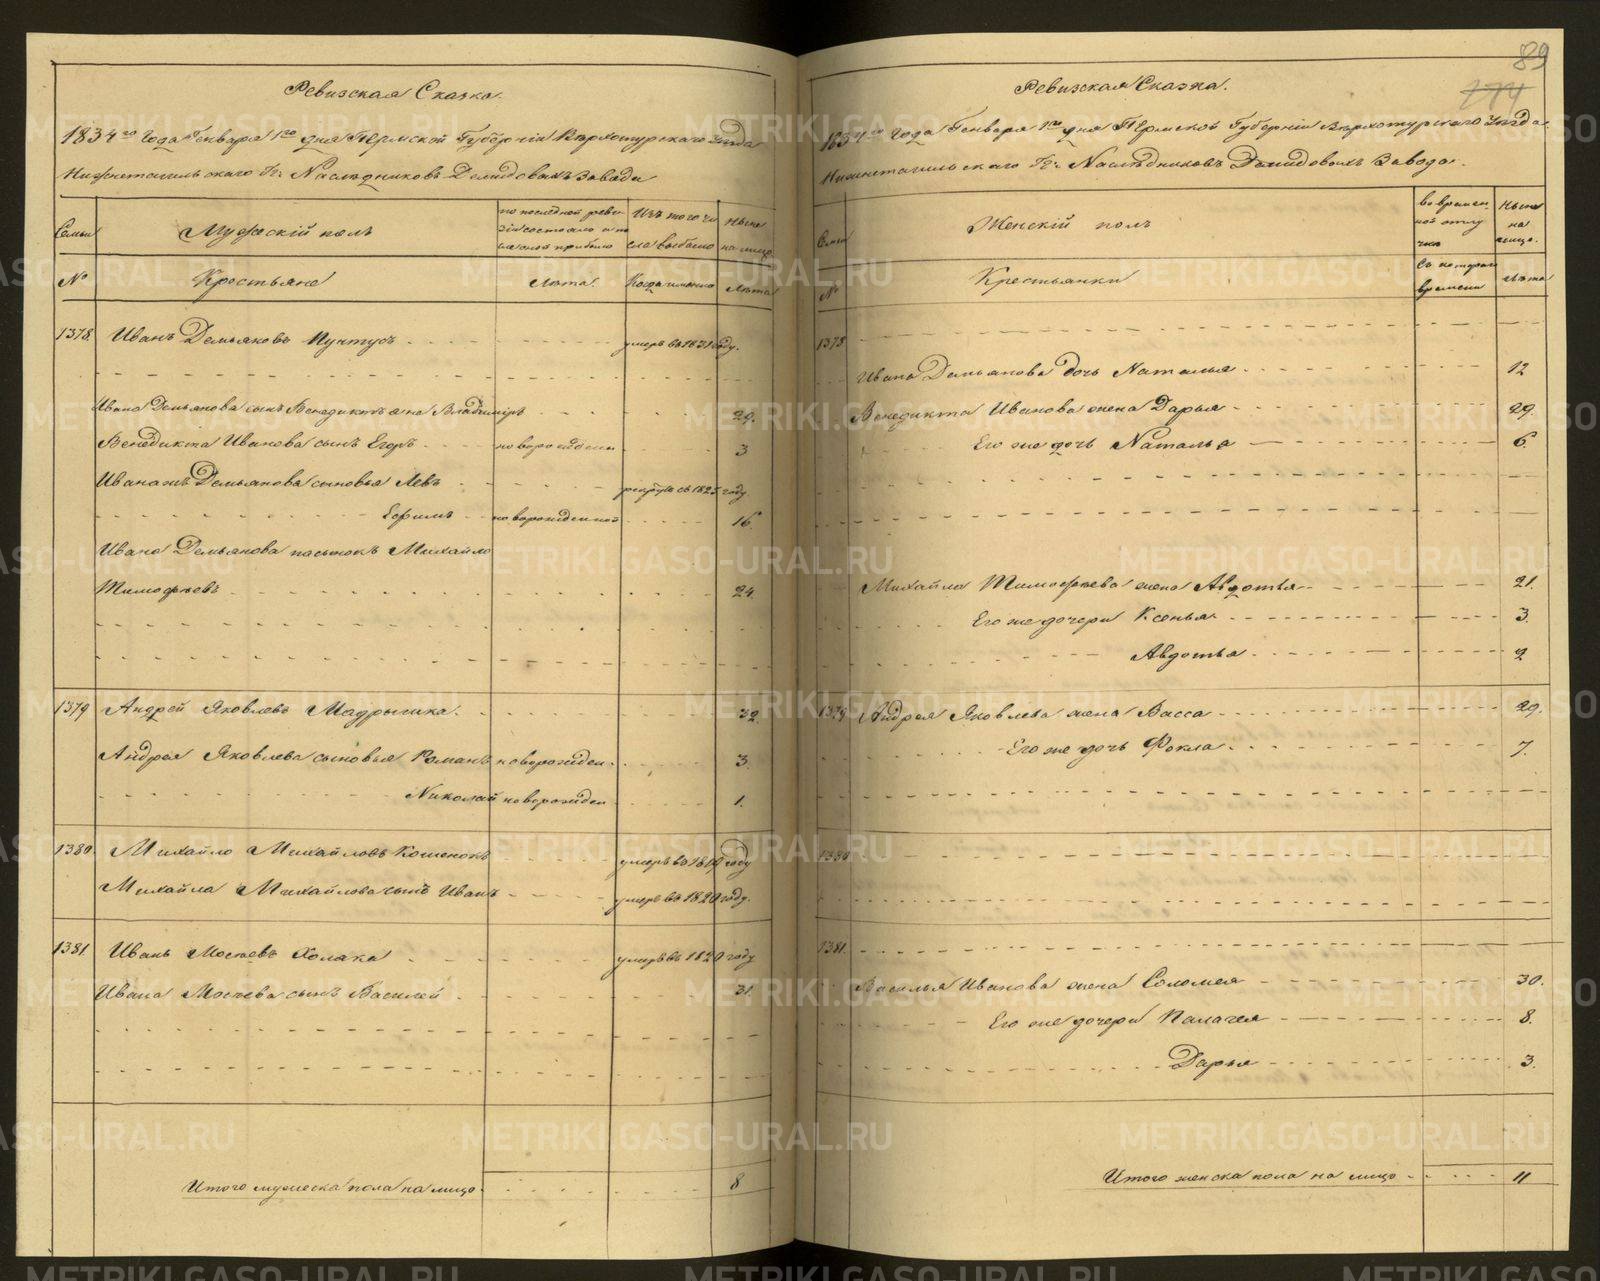 Ревизская Сказка.
1834го Года Генваря 1го дня Пермской Губерніи Верхотурскаго Уезда
Нижнетагильскаго Гг. Наследниковъ Демидовыхъ Завода
Семьи
Мужескій полъ
по последней ревизіи состояло и после оной прибыло
Изъ того числа выбыло
Ныне на лицо
№
Крестьяне
Лета.
Когда именно
Лета
1378. Иванъ Демьяновъ Пунтусъ умеръ въ 1831 году.
Ивана Демьянова сынъ Венедиктъ а не Владимиръ 29.
Венедикта Иванова сынъ Егоръ новорожден 3
Иванажъ Демьянова сыновья Левъ рекрут съ 1825 году
Ефимъ новорожденной 16.
Ивана Демьянова пасынокъ Михайло
Тимофеевъ 24.
1379 Андрей Яковлевъ Мадрышка. 32.
Андрея Яковлева сыновья Романъ новорожден. 3.
Николай новорожден 1.
1380. Михайло Михайловъ Кошенокъ умеръ въ 1819 году
Михайла Михайлова сынъ Иванъ умеръ въ 1820 году.
1381. Иванъ Мосеевъ Холяка умеръ въ 1820 году
Ивана Мосеева сынъ Василей 31.
Итого мужеска пола на лицо 8
89
174
Ревизская Сказка.
1834го Года Генваря 1го дня Пермской Губерніи Верхотурскаго Уезда
Нижнетагильскаго Гг. Наследниковъ Демидовыхъ Завода.
Семьи
Женскій полъ
во временной отлучке
Ныне на лицо.
№
Крестьянки
Съ котораго времени
Лета
1378
Ивана Демьянова дочь Наталья 12
Венедикта Иванова жена Дарья 29.
Его же дочь Наталья 6
Михайла Тимофеева жена Авдотья 21.
Его же дочери Ксенья 3.
Авдотья 2
1379 Андрея Яковлева жена Васса 29.
Его же дочь Фокла 7.
1380
1381.
Василья Иванова жена Соломея 30.
Его же дочери Палагея 8.
Дарья 3.
Итого женска пола на лицо 11
METRIKI.GASO-URAL.RU